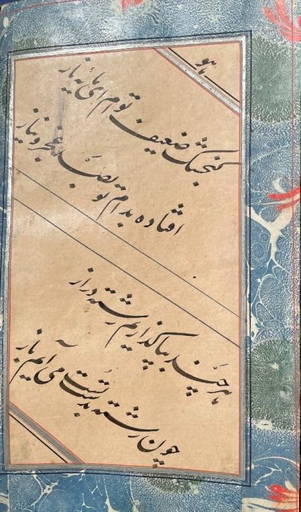 یا هو
گنجشک ضعیف توام ای مایه ناز
افتاده بدام تو بصد عجز و نیاز
هر چند بپا گذاریم رشته دراز
چون رشته بدست تست می آیم باز